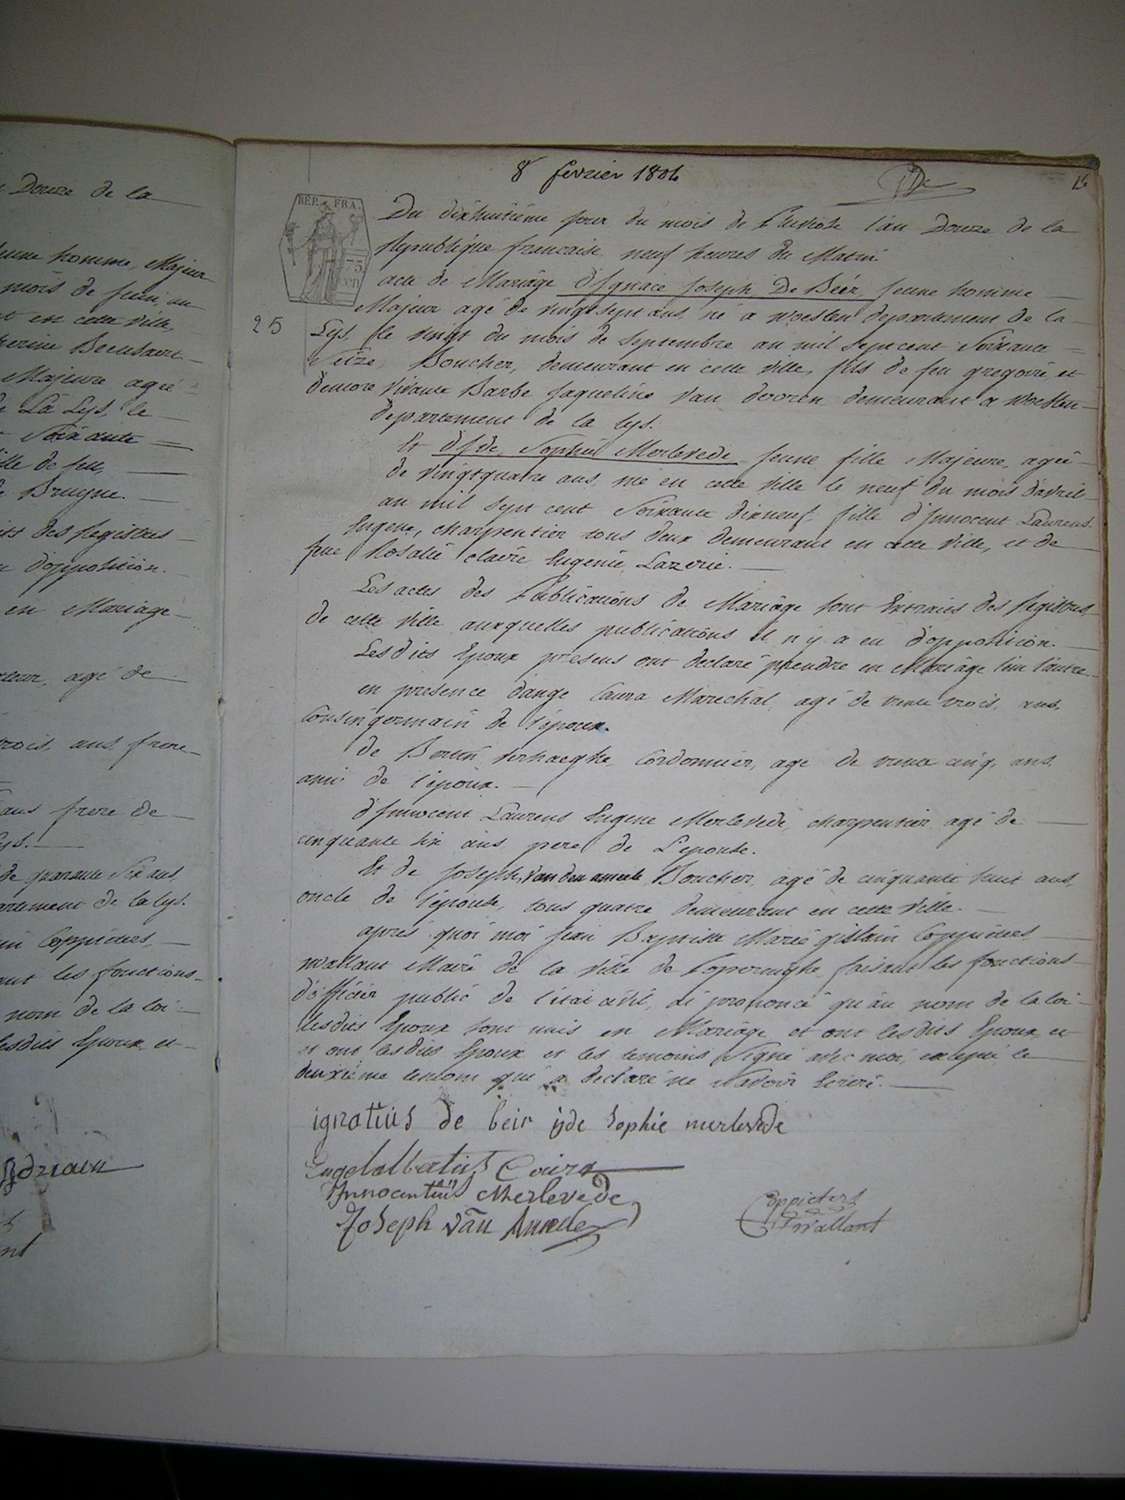 Douze de la
jeune homme, Majeur
mois de Juin, au
et en cette ville,
Majeure agee
de La Lys, le
Soixante
fille de feu
de Bruyne.
des Registres
d'opposition.
en Mariage
agé de
trois ans frere
ans frere de
Lys.
de quarante Six ans
département de la Lys.
Coppieters
les fonctions
nom de la loi
lesdits Epoux et
8 fevrier 1804
16
REP. FRA.
75
25
Du dixhuitiéme jour du mois de Pluviose l'an Douze de la
Republique francaise neuf heures du Matin
acte de Mariage d'Ignace Joseph De Beir, jeune homme
Majeur agé de vingtsept ans né a Woesten departement de la
Lys, le vingt du mois de Septembre an mil Septcent Soixante
Seize, Boucher, demeurant en cette ville, fils de feu gregoire et
demeure vivante Barbe Jaqueline Van demeurant a Woesten
departement de la Lys.
Et d'Ide Sophie Merlevede jeune fille Majeure, agée
de vingtquatre ans, née en cette ville le neuf du mois d'avril
an mil Sept cent Soixante dixneuf fille d'Innocent Laurens
Eugene, charpentier tous deux demeurant en cette ville, et de
feue Rosalie claire Eugenie Lazerie.
Les actes des Publications de Mariage sont Extraits des Registres
de cette ville auxquelles publications il n'y a eu d'opposition.
Lesdits Epoux presens ont declaré prendre en Mariage l'un l'autre
en presence d'ange Marechal, agé de trente trois ans,
Cousin germain de l'époux.
de Verhaeghe Cordonnier, agé de trente cinq ans,
ami de l'époux.
d'Innocent Laurens Eugene Merlevede, charpentier agé de
cinquante Six ans pere de l'épouse.
Et de Joseph, Van den ameele Boucher, agé de cinquante huit ans,
oncle de l'épouse, tous quatre demeurant en cette ville.
apres quoi moi Jean Baptiste Marie gislain Coppieters
Wallant Maire de la ville de Poperinghe, faisant les fonctions
d'officier public de l'état civil, ai prononcé qu'au nom de la loi
lesdits Epoux sont unis en Mariage, et ont lesdits Epoux et
et ont lesdits Epoux et les temoins Signé avec moi, excepté le
deuxième temoin qui a declaré ne Savoir Ecrire.
ignatius de beir ijde sophie merlevede
Engelalbertus
Innocentius Merlevede
Joseph van Ameele
Coppieters
Wallant